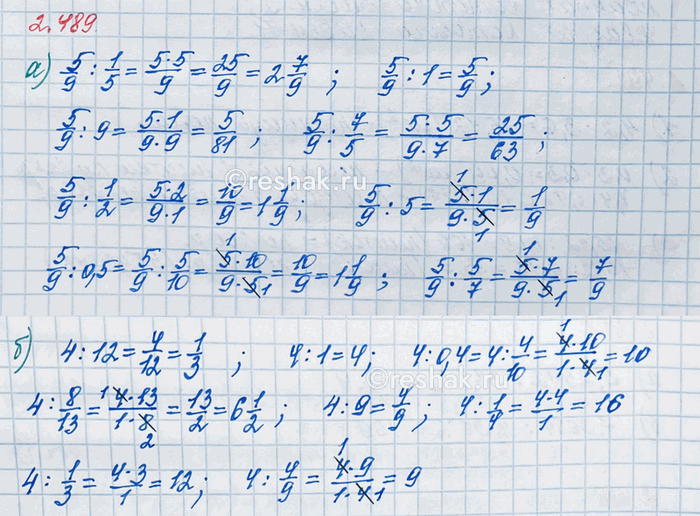 2.489
а) 5/9 : 1/5 = 5·5/9 = 25/9 = 2 7/9 ; 5/9 : 1 = 5/9 ;
5/9 : 9 = 5·1/9·9 = 5/81 ; 5/9 : 7/5 = 5·5/9·7 = 25/63 ;
reshak.ru
5/9 : 1/2 = 5·2/9·1 = 10/9 = 1 1/9 ; 5/9 : 5 = 5·1/9·5 = 1/9
5/9 : 0,5 = 5/9 : 5/10 = 5·10/9·5 = 10/9 = 1 1/9 ; 5/9 : 5/7 = 5·7/9·5 = 7/9
б) 4 : 12 = 4/12 = 1/3 ; 4 : 1 = 4 ; 4 : 0,4 = 4 : 4/10 = 4·10/1·4 = 10
reshak.ru
4 : 8/13 = 4·13/1·8 = 13/2 = 6 1/2 ; 4 : 9 = 4/9 ; 4 : 1/4 = 4·4/1 = 16
4 : 1/3 = 4·3/1 = 12 ; 4 : 4/9 = 4·9/1·4 = 9